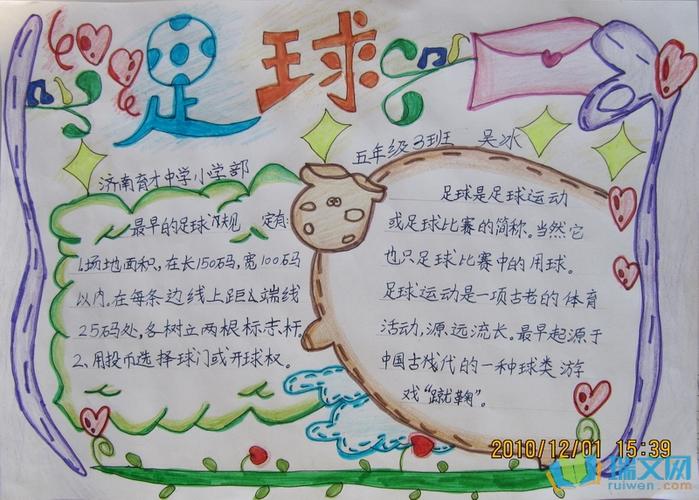 足球
五年级3班 吴冰
济南育才中学小学部
最早的足球法规 定有:
1.场地面积,在长150码,宽100码
以内。在每条边线上距&端线
25码处,各树立两根标志杆
2、用投币选择球门或开球权。
足球是足球运动
或足球比赛的简称。当然它
也只足球比赛中的用球。
足球运动是一项古老的体育
活动,源远流长。最早起源于
中国古代代的一种球类游
戏“蹴鞠”。
2010/12/01 15:39
瑞文网
ruiwen.com